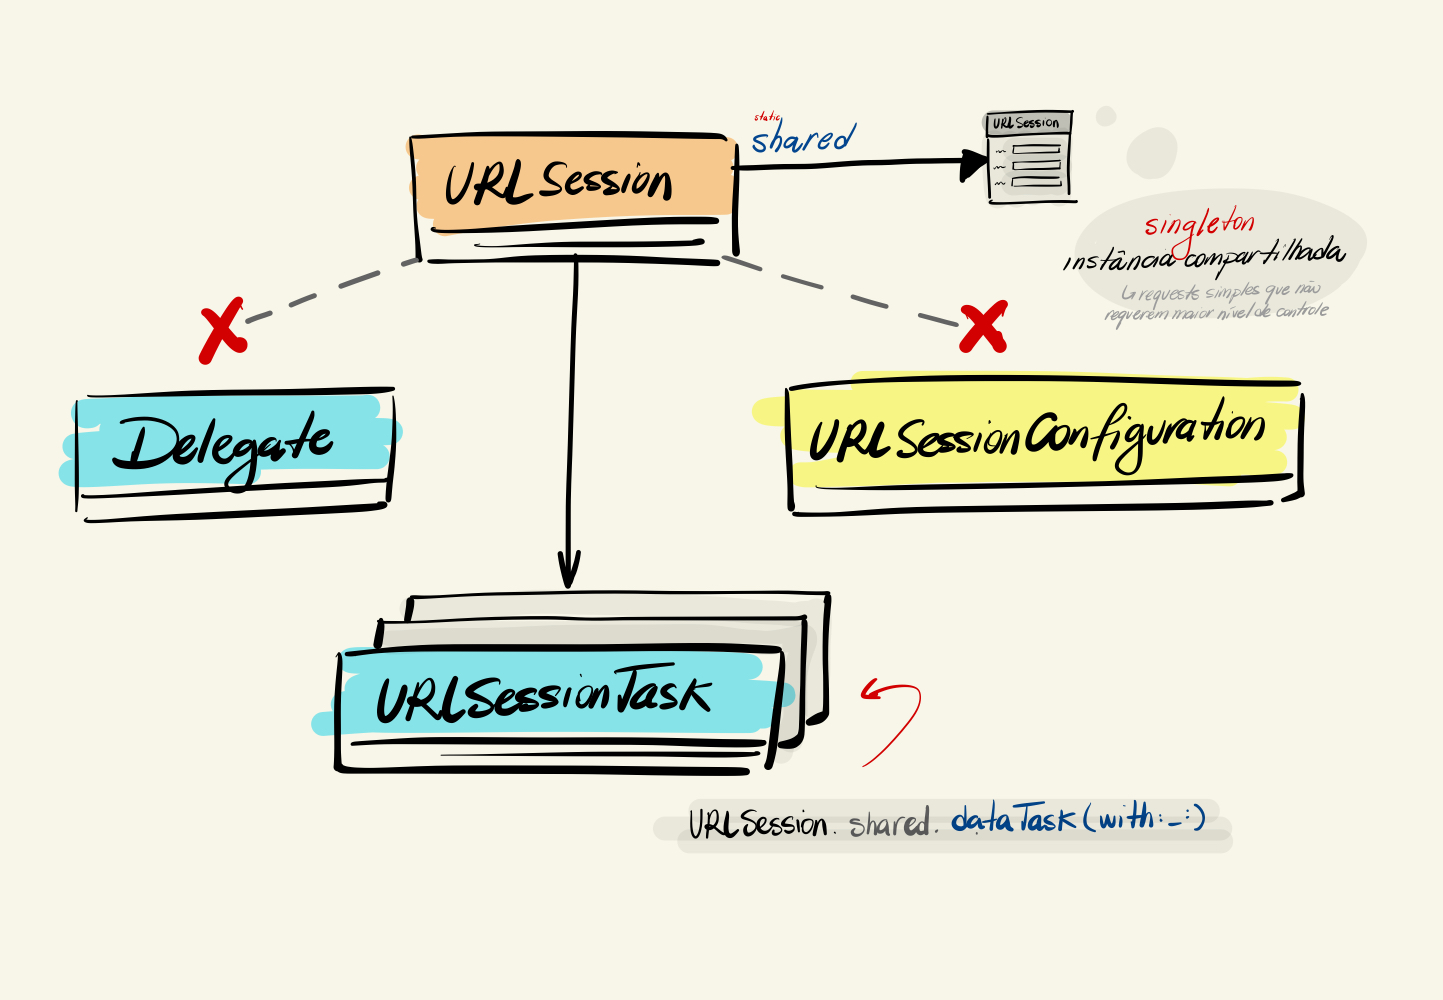 static
shared
URLSession
URLSession
singleton
instância compartilhada
↳ requests simples que não
requerem maior nível de controle
Delegate
URLSessionConfiguration
URLSessionTask
URLSession.shared.dataTask(with:_:)